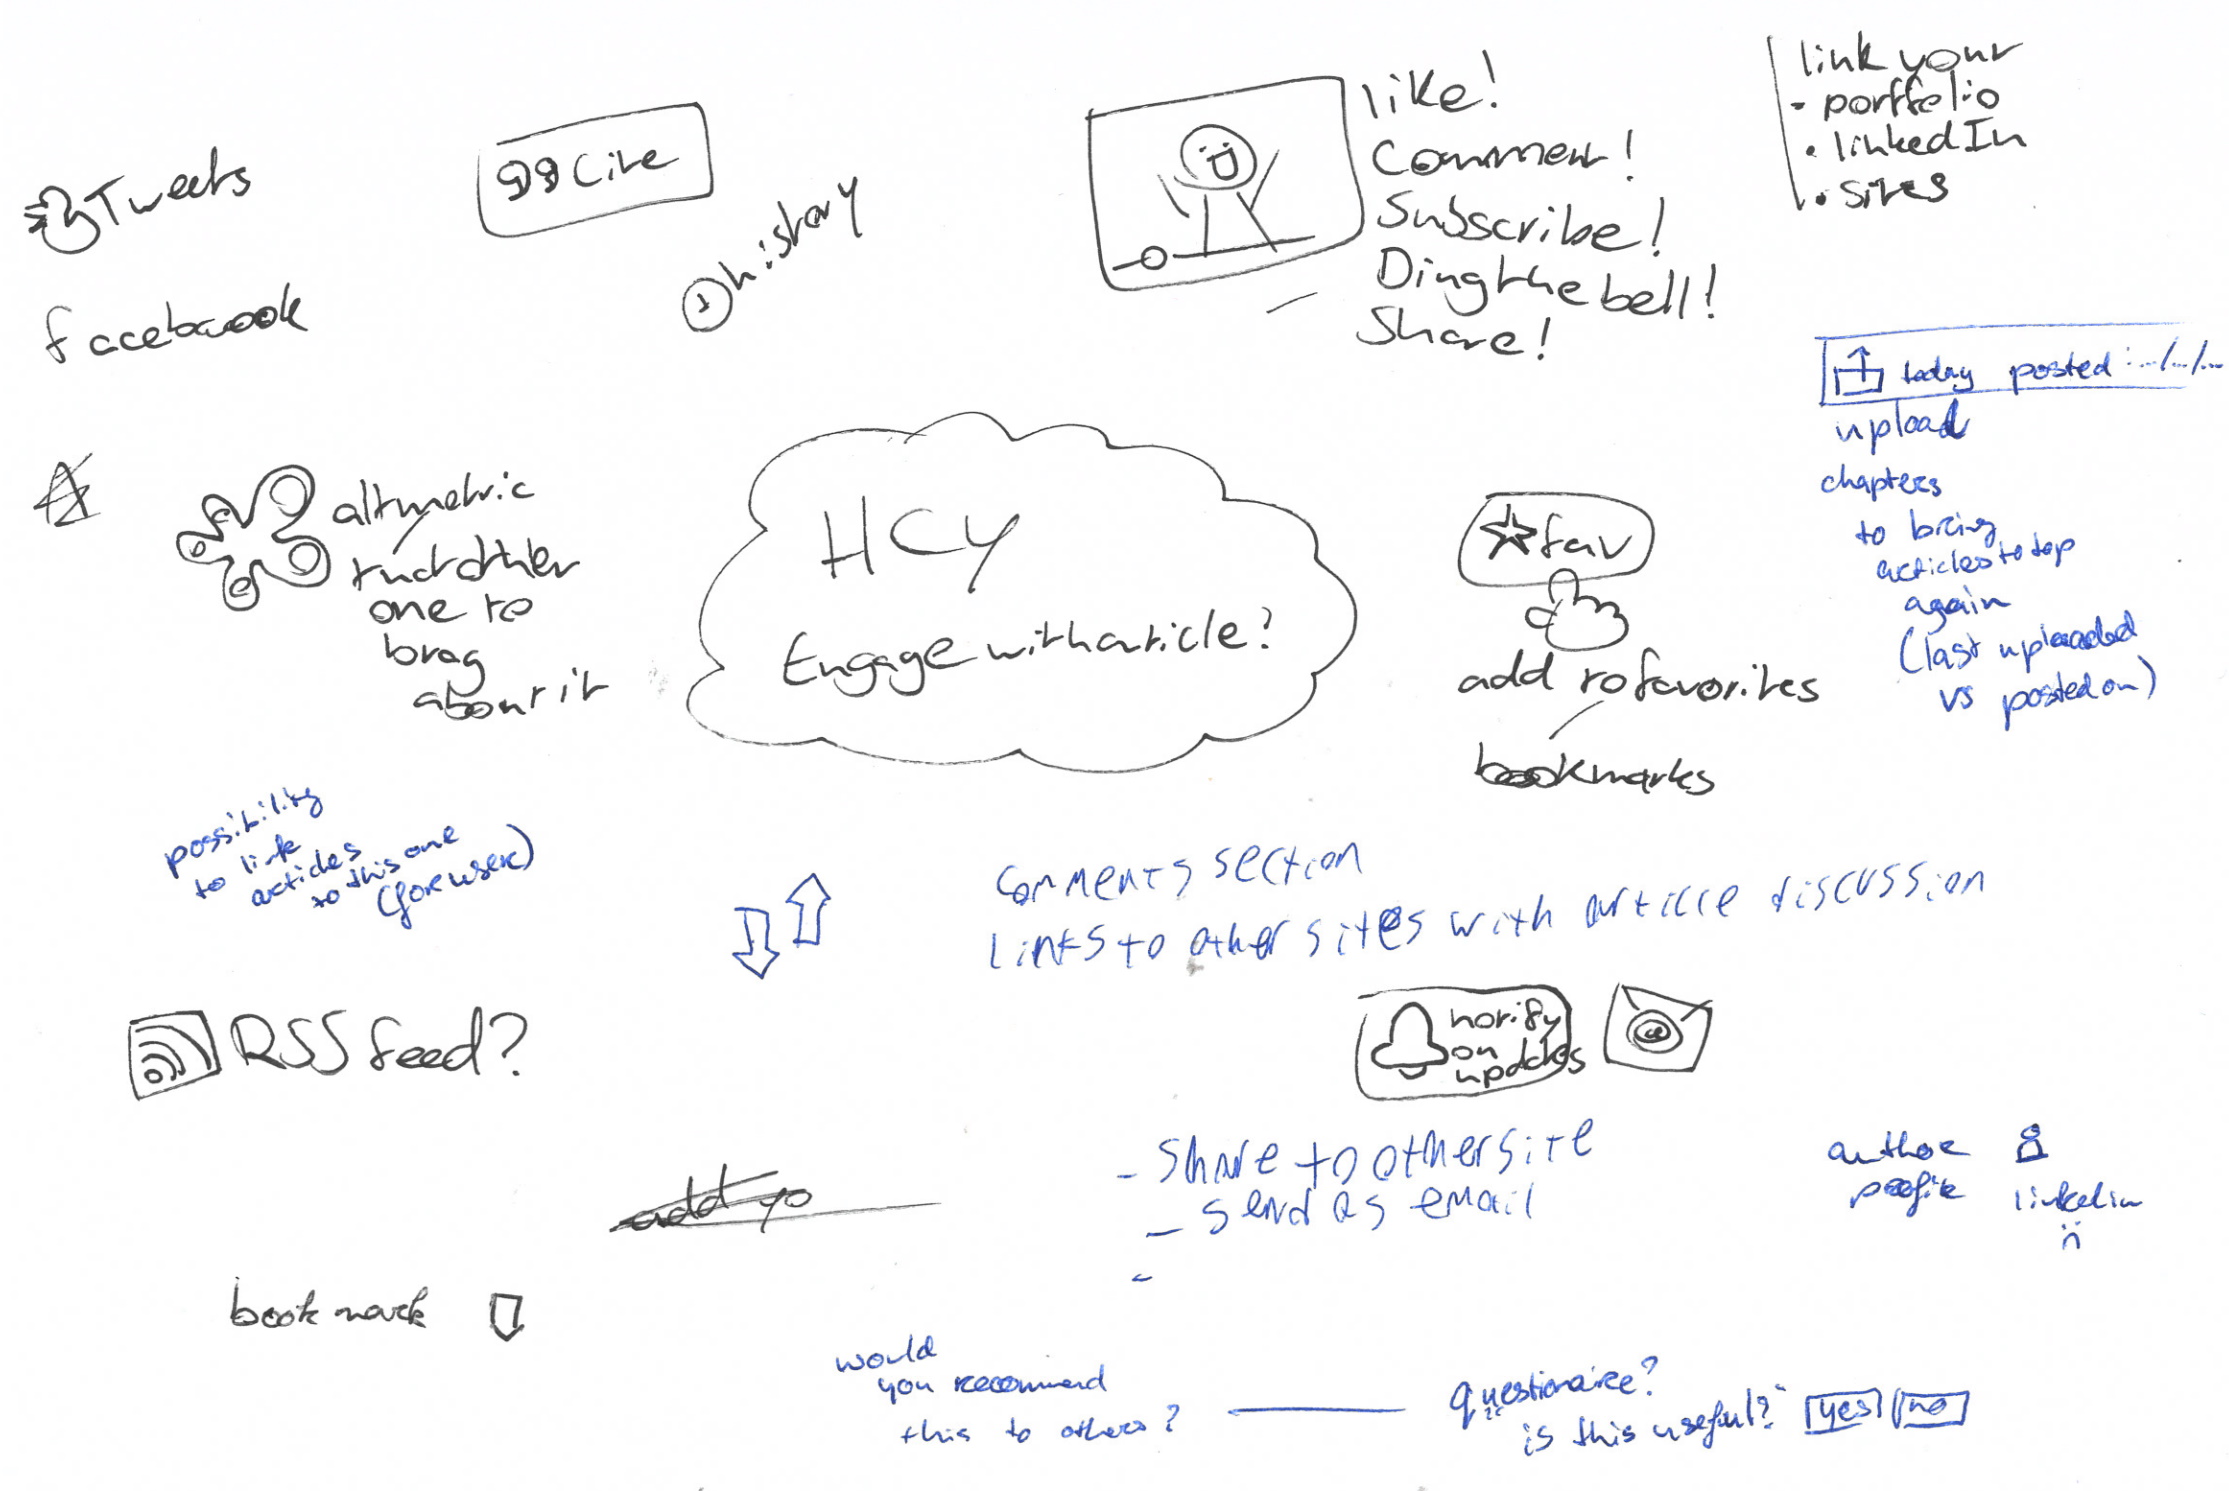 Tweets
facebook
99 Cite
history
like!
Comment!
Subscribe!
Ding the bell!
Share!
link your
- portfolio
• linkedIn
• sites
today posted: .../.../...
upload
chapters
to bring
articles to top
again
(last uploaded
vs posted on)
altmetric
and other
one to
brag
about it
HCY
Engage with article?
fav
add to favorites
bookmarks
possibility
to link
articles
to this one
(for user)
Comments section
Links to other sites with article discussion
RSS feed?
notify
on
updates
@
add yo
- Share to other site
- send as email
-
author
profile
linkedin
bookmark
would
you recommend
this to others?
questionaire?
"is this useful?" yes no